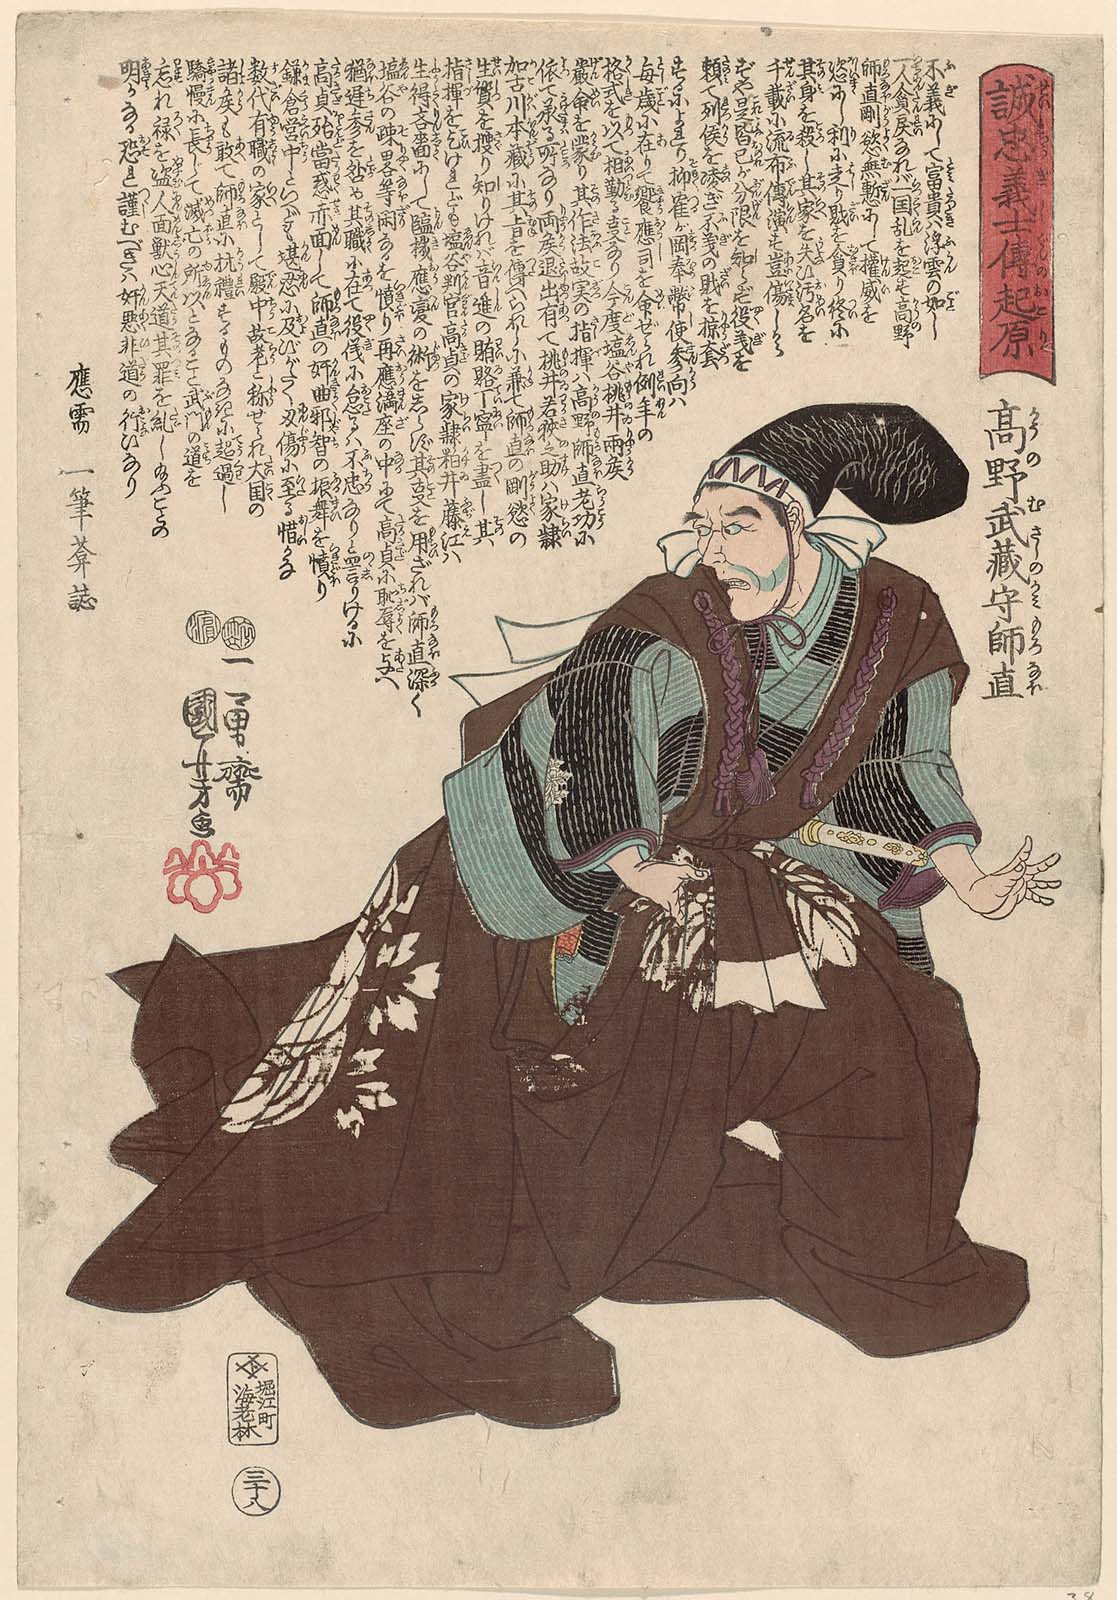 誠忠義士傳起原
高野武藏守師直
不義にして富貴ハ浮雲の如し
一人貪戻なれバ一国乱を起も高野
師直剛慾無慙にして權威を
恣にし利に走り賄を貪り終に
其身を殺し其家を失ひ汚名を
千載に流布傳演も豈傷しから
ずや是皆己が分限を知らず役義を
頼て列侯を凌ぎ不義の賎を掠奪
するによれり抑雀が岡奉幣使参向ハ
毎歳に在りて饗應司を命ぜられ例年の
格式を以て相勤る叓あり今度塩谷桃井両侯
嚴命を蒙り其作法故実の指揮ハ高野師直老功に
依て承る所なり両侯退出有て桃井若狭之助ハ家隷
加古川本蔵に其旨を傳へられしに兼て師直の剛慾の
生質を搜り知りけれバ音進の賄賂丁寧を盡し其
指揮をうけれども塩谷判官高貞の家隷粕井藤江ハ
生得吝嗇にして臨機應変の術をしらず其言を用ざれバ師直深く
塩谷の疎畧等閑なるを憤り再應満座の中にて高貞に恥辱を与へ
猶遅参を咎や其職に在て役儀に怠るハ不忠なりと詈りけるに
高貞殆當惑赤面して師直の奸曲邪智の振舞を憤り
鎌倉宮中といへども堪忍に及びがたく刃傷に至る惜かな
数代有職の家として殿中故老と称せられ大国の
諸侯も敢て師直に抗禮するものなきに起過し
驕慢に長じて滅亡の所以となること武門の道を
忘れ禄を盗人面獣心天道其罪を乱し給ふとその
明かなる恐れ謹むべきハ奸悪非道の行ひなり
應需 一筆菴誌
一勇齋
國芳画
堀江町
海老林
三十八